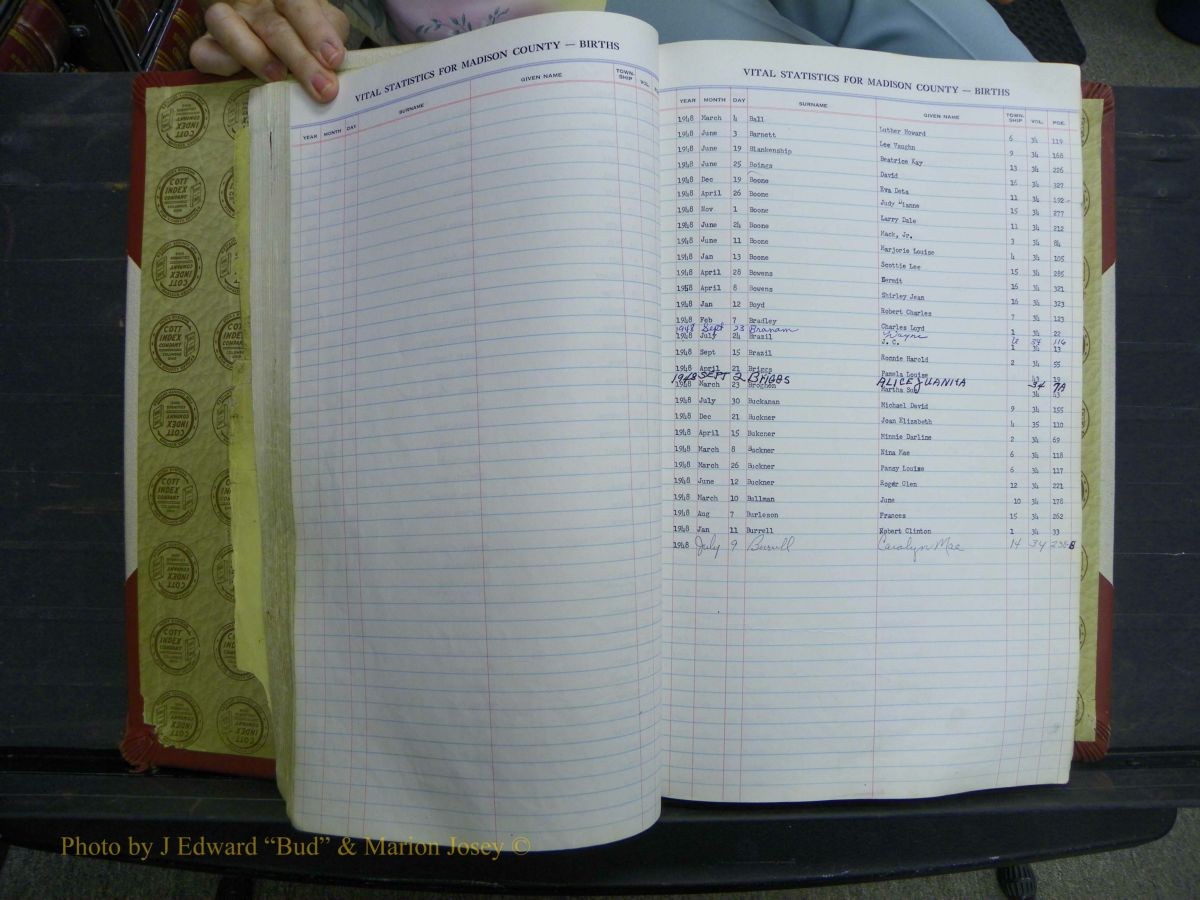 VITAL STATISTICS FOR MADISON COUNTY — BIRTHS
YEAR MONTH DAY SURNAME GIVEN NAME TOWN-SHIP VOL.
VITAL STATISTICS FOR MADISON COUNTY — BIRTHS
YEAR MONTH DAY SURNAME GIVEN NAME TOWN-SHIP VOL. PGE.
1948 March 4 Ball Luther Howard 6 34 119
1948 June 3 Barnett Lee Vaughn 9 34 168
1948 June 19 Blankenship Beatrice Kay 13 34 226
1948 June 25 Boings David 16 34 327
1948 Dec 19 Boone Eva Deta 11 34 192
1948 April 26 Boone Judy 15 34 277
1948 Nov 1 Boone Larry Dale 11 34 212
1948 June 24 Boone Mack, Jr. 3 34 84
1948 June 11 Boone Marjorie Louise 4 34 105
1948 Jan 13 Boone Scottie Lee 15 34 285
1948 April 28 Bowens Hermit 16 34 321
1948 April 8 Bowens Shirley Jean 16 34 323
1948 Jan 12 Boyd Robert Charles 7 34 123
1948 Feb 7 Bradley Charles Loyd 1 34 22
1948 Sept 23 Branam Wayne 12 34 116
1948 July 24 Brazil J. C. 1 34 13
1948 Sept 15 Brazil Ronnie Harold 2 34 55
April 21 Briggs Pamela Louise 19
1948 SEPT 2 BRIGGS ALICE JUANITA 34 7A
March 23 Broghen Martha Sue 34
1948 July 30 Buckanan Michael David 9 34 155
1948 Dec 21 Buckner Joan Elizabeth 4 35 110
1948 April 15 Bukcner Minnie Darline 2 34 69
1948 March 8 Buckner Nina Mae 6 34 118
1948 March 26 Buckner Pansy Louise 6 34 117
1948 June 12 Buckner Roger Olen 12 34 221
1948 March 10 Bullman June 10 34 178
1948 Aug 7 Burleson Frances 15 34 262
1948 Jan 11 Burrell Robert Clinton 1 34 33
1948 July 9 Burrell Carolyn Mae 14 34 238-B
COTT INDEX COMPANY
Photo by J Edward “Bud” & Marion Josey ©